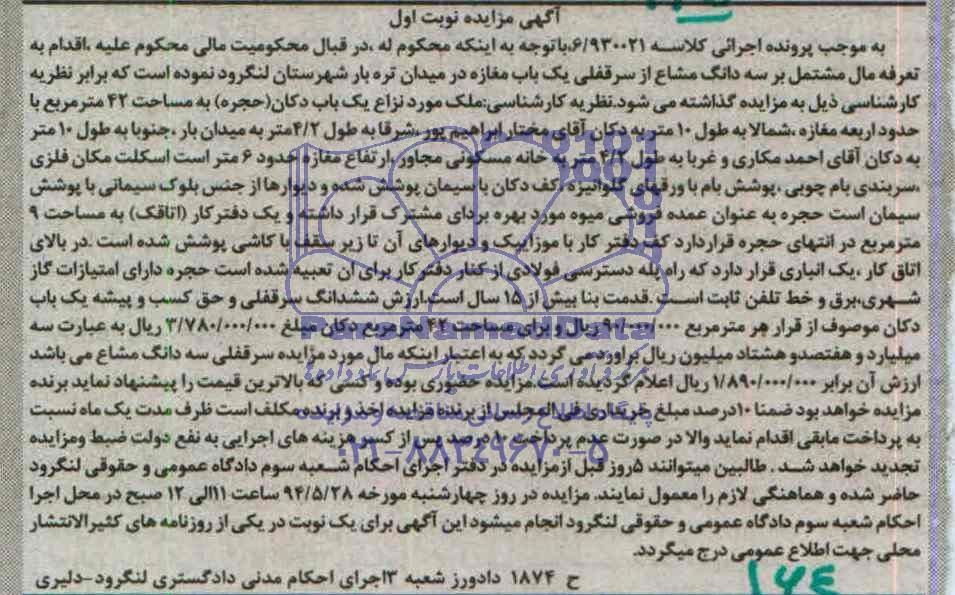 آگهی مزایده نوبت اول
به موجب پرونده اجرائی کلاسه ۶/۹۳۰۰۲۱،باتوجه به اینکه محکوم له ،در قبال محکومیت مالی محکوم علیه ،اقدام به
تعرفه مال مشتمل بر سه دانگ مشاع از سرقفلی یک باب مغازه در میدان تره بار شهرستان لنگرود نموده است که برابر نظریه
کارشناسی ذیل به مزایده گذاشته می شود.نظریه کارشناسی:ملک مورد نزاع یک باب دکان(حجره) به مساحت ۴۲ مترمربع با
حدود اربعه مغازه ،شمالا به طول ۱۰ متر به دکان آقای مختار ابراهیم پور ،شرقا به طول ۴/۲متر به میدان بار ،جنوبا به طول ۱۰ متر
به دکان آقای احمد مکاری و غربا به طول ۴/۲ متر به خانه مسکونی مجاور .ارتفاع مغازه حدود ۶ متر است اسکلت مکان فلزی
،سربندی بام چوبی ،پوشش بام با ورقهای گلوانیزه ،کف دکان با سیمان پوشش شده و دیوارها از جنس بلوک سیمانی با پوشش
سیمان است حجره به عنوان عمده فروشی میوه مورد بهره بردای مشترک قرار داشته و یک دفترکار (اتاقک) به مساحت ۹
مترمربع در انتهای حجره قراردارد کف دفتر کار با موزاییک و دیوارهای آن تا زیر سقف با کاشی پوشش شده است .در بالای
اتاق کار ،یک انباری قرار دارد که راه پله دسترسی فولادی از کنار دفترکار برای آن تعبیه شده است حجره دارای امتیازات گاز
شهری،برق و خط تلفن ثابت است .قدمت بنا بیش از ۱۵ سال است.ارزش ششدانگ سرقفلی و حق کسب و پیشه یک باب
دکان موصوف از قرار هر مترمربع ۹۰/۰۰۰/۰۰۰ ریال و برای مساحت ۴۲ مترمربع دکان مبلغ ۳/۷۸۰/۰۰۰/۰۰۰ ریال به عبارت سه
میلیارد و هفتصدو هشتاد میلیون ریال براورد می گردد که به اعتبار اینکه مال مورد مزایده سرقفلی سه دانگ مشاع می باشد
ارزش آن برابر ۱/۸۹۰/۰۰۰/۰۰۰ ریال اعلام گردیده است.مزایده حضوری بوده و کسی که بالاترین قیمت را پیشنهاد نماید برنده
مزایده خواهد بود ضمنا ۱۰درصد مبلغ خریداری فی المجلس از برنده مزایده اخذ و برنده مکلف است ظرف مدت یک ماه نسبت
به پرداخت مابقی اقدام نماید والا در صورت عدم پرداخت ۱۰درصد پس از کسر هزینه های اجرایی به نفع دولت ضبط ومزایده
تجدید خواهد شد . طالبین میتوانند ۵روز قبل ازمزایده در دفتر اجرای احکام شعبه سوم دادگاه عمومی و حقوقی لنگرود
حاضر شده و هماهنگی لازم را معمول نمایند. مزایده در روز چهارشنبه مورخه ۹۴/۵/۲۸ ساعت ۱۱الی ۱۲ صبح در محل اجرا
احکام شعبه سوم دادگاه عمومی و حقوقی لنگرود انجام میشود این آگهی برای یک نوبت در یکی از روزنامه های کثیرالانتشار
محلی جهت اطلاع عمومی درج میگردد.
ح ۱۸۷۴ دادورز شعبه ۳اجرای احکام مدنی دادگستری لنگرود-دلیری
ParsNamadData
مرکز فرآوری اطلاعات پارس نماد داده ها
۰۲۱-۸۸۳۴۹۶۷۰-۵
۱۶۴